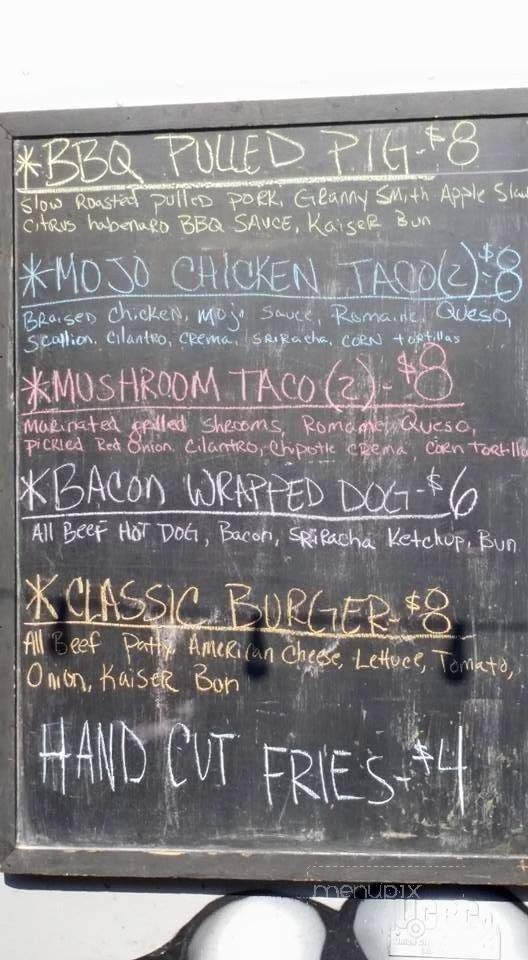 *BBQ PULLED PIG-$8
Slow Roasted pulled PORK, Granny Smith Apple Slaw
Citrus habenaro BBQ SAUCE, Kaiser Bun
*MOJO CHICKEN TACO(2)-$8
Braised Chicken, Mojo Sauce, Romaine, Queso,
Scallion, Cilantro, Crema, Sriracha, CORN tortillas
*MUSHROOM TACO(2)-$8
Marinated grilled Shrooms, Romaine, Queso,
Pickled Red Onion, Cilantro, Chipotle Crema, Corn Tortilla
*BACON WRAPPED DOG-$6
All Beef Hot Dog, Bacon, SRiRacha Ketchup, Bun
*CLASSIC BURGER-$8
All Beef Patty, American Cheese, Lettuce, Tomato,
Onion, Kaiser Bun
HAND CUT FRIES-$4
menupix